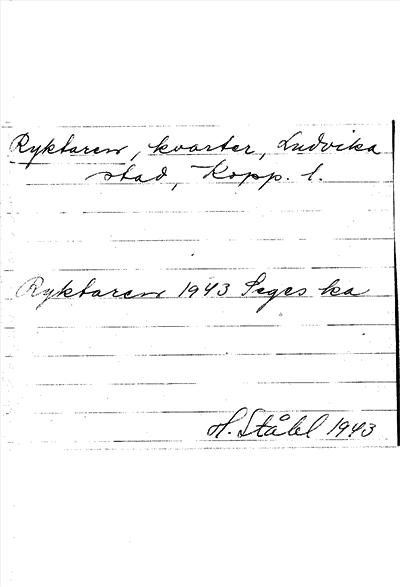 Ryktaren, kvarter, Ludvika
stad, Kopp. l.
Ryktaren 1943 Seges ka
H. Ståhl 1943